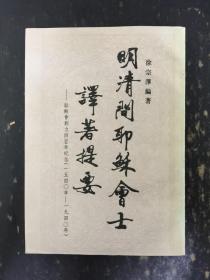 徐宗澤編著
明清間耶穌會士
譯著提要
——耶穌會創立四百年紀念(一五四〇年——一九四〇年)